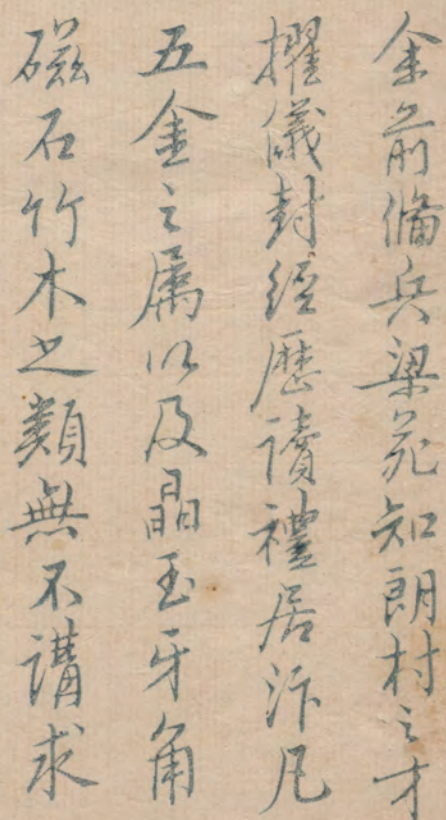 余前偹兵梁苑知朗村之才
擢儀封經歷讀禮居汴凡
五金之屬以及晶玉牙角
磁石竹木之類無不講求